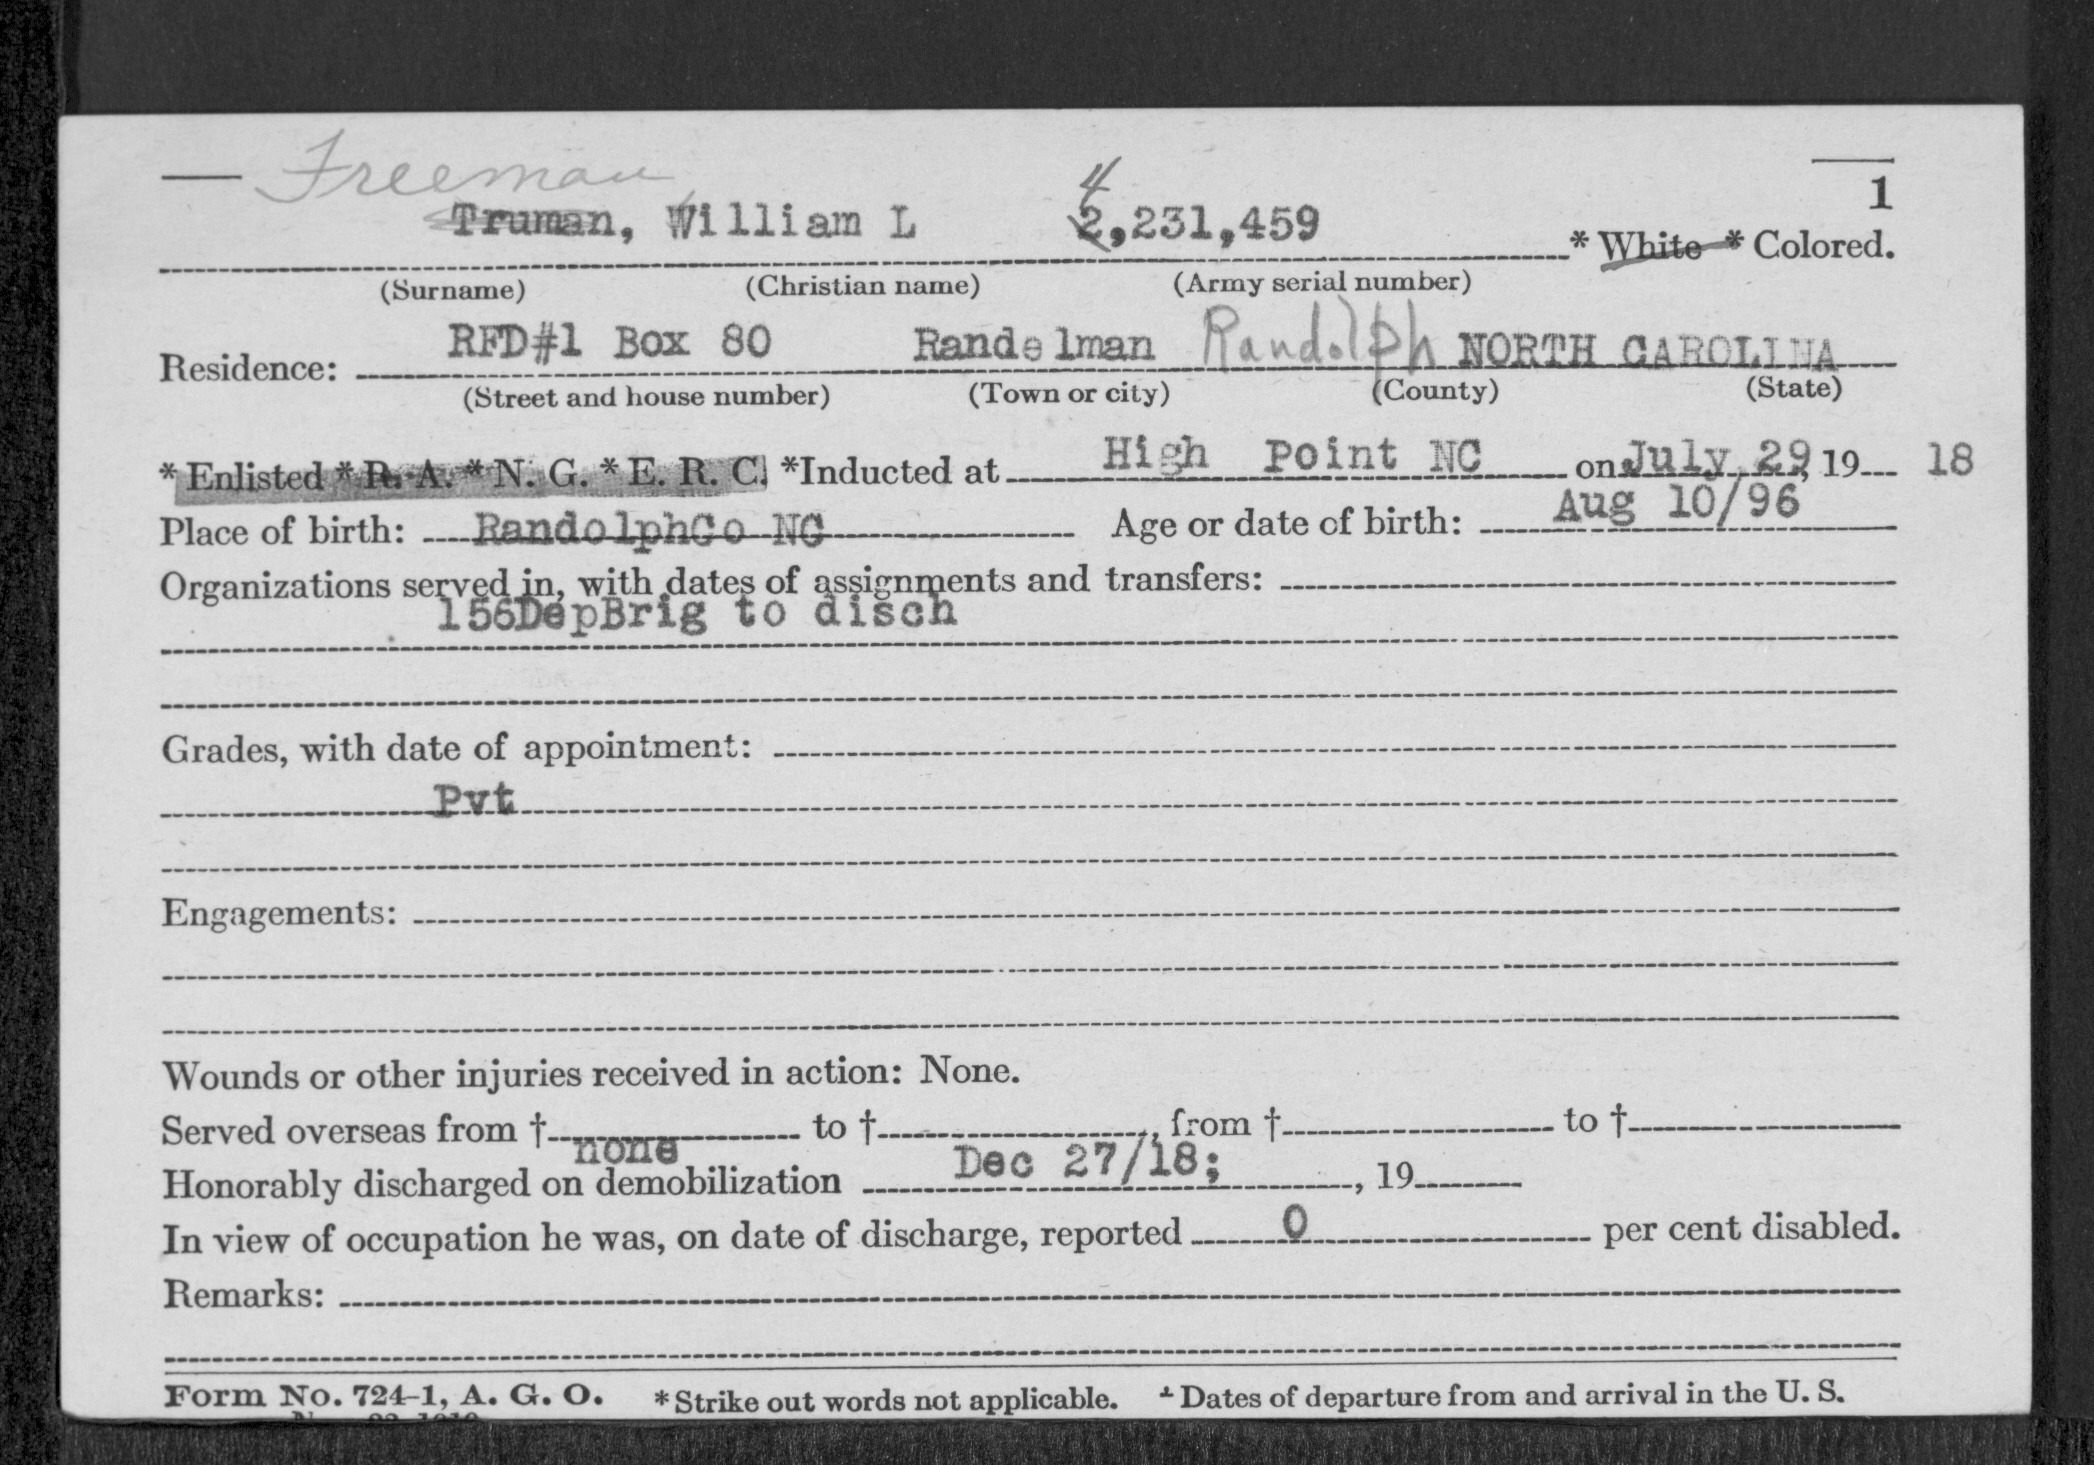 — Freeman
1
Truman, William L 4 2,231,459 * White * Colored.
(Surname) (Christian name) (Army serial number)
Residence: RFD#1 Box 80 Randelman Randolph NORTH CAROLINA
(Street and house number) (Town or city) (County) (State)
* Enlisted * R. A. * N. G. * E. R. C. *Inducted at High Point NC on July 29, 19 18
Place of birth: RandolphCo NC Age or date of birth: Aug 10/96
Organizations served in, with dates of assignments and transfers:
156DepBrig to disch
Grades, with date of appointment:
Pvt
Engagements:
Wounds or other injuries received in action: None.
Served overseas from † none to †, from † to †
Honorably discharged on demobilization Dec 27/18; , 19
In view of occupation he was, on date of discharge, reported 0 per cent disabled.
Remarks:
Form No. 724-1, A. G. O. * Strike out words not applicable. † Dates of departure from and arrival in the U. S.